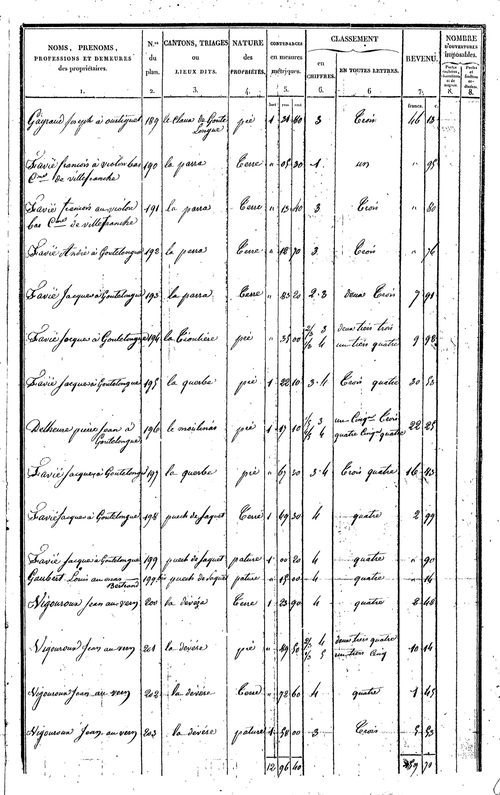 NOMS, PRENOMS,
PROFESSIONS ET DEMEURES
des propriétaires.
1.
N.os
du
plan.
2.
CANTONS, TRIAGES
ou
LIEUX DITS.
3.
NATURE
des
PROPRIÉTÉS.
4.
CONTENANCES
en mesures
métriques.
5.
CLASSEMENT
en
CHIFFRES.
6.
EN TOUTES LETTRES.
6
REVENU.
7.
NOMBRE
D'OUVERTURES
imposables.
8.
8.
francs. c.
Joseph à 189 le Claux de Goute
Longue pré 1 31 80 3 Trois 46 13
Favié francois à violon bas 190 la parra Terre " 05 30 1 un " 95
C.ne de villefranche
Favié francois au violon 191 la parra Terre " 13 40 3 Trois " 80
bas C.ne de villefranche
Favié André à Goutelongue 192 la parra Terre " 18 70 3 Trois " 76
Favié Jacques à Goutelongue 193 la parra Terre " 83 20 2-3 deux Trois 7 91
Favié Jacques à Goutelongue 194 pré " 35 00 2/3 3 deux tiers trois
1/3 4 un tiers quatre 9 98
Favié Jacques à Goutelongue 195 la querbe pré 1 22 10 3-4 Trois quatre 30 53
Delheure pierre Jean à 196 le moulinas pré 1 17 10 1/5 3 un Cinq.me Trois
Goutelongue 4/5 4 quatre Cinq.me quatre 22 25
Favié Jacques à Goutelongue 197 la querbe pré " 67 20 3-4 Trois quatre 16 43
Favié Jacques à Goutelongue 198 puech de Jaquet Terre 1 49 30 4 quatre 2 99
Favié Jacques à Goutelongue 199 puech de Jaquet pature 1 00 20 4 quatre " 90
Gaubert Louis 199 bis puech de Jaquet pature " 15 00 4 quatre " 14
Bertrand
Vigouroux Jean au vern 200 la devèze Terre 1 23 90 4 quatre 2 48
Vigouroux Jean au vern 201 la devèze pré " 89 50 2/3 4 deux tiers quatre
1/3 5 un tiers Cinq 10 14
Vigouroux Jean au vern 202 la devèze Terre " 72 60 4 quatre 1 45
Vigouroux Jean au vern 203 la devèze pature 1 58 00 3 Trois 5 53
12 96 40 159 70